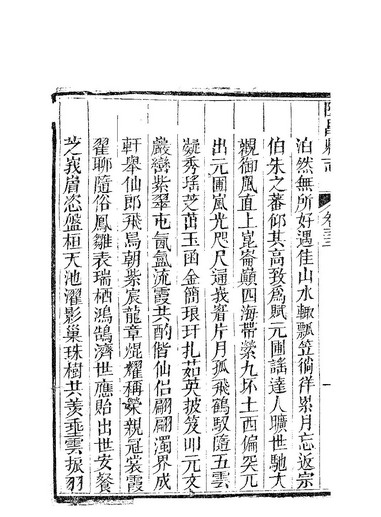 泊然無所好遇佳山水輙瓢笠徜徉累月忘返宗
伯朱之蕃仰其高致爲賦元圃謠達人曠世馳大
觀御風直上崑崙巔四海帶縈九坏土西偏突元
出元圃嵐光咫尺逼我窻片月孤飛鶴馭隨五雲
凝秀瑶芝茁玉函金簡琅玕扎茹英披笈叩元文
嚴巒紫翠屯氤氳流霞共酌偕仙侣翩翩濁界成
軒舉仙郎飛舄朝紫宸龍章焜耀稱榮親冠裳霞
翟聊隨俗鳳雛表瑞栖鴻鵠濟世應貽出世安餐
芝峩嵋恣盤桓天池濯影巢珠樹共羡垂雲振羽
縣志
卷三